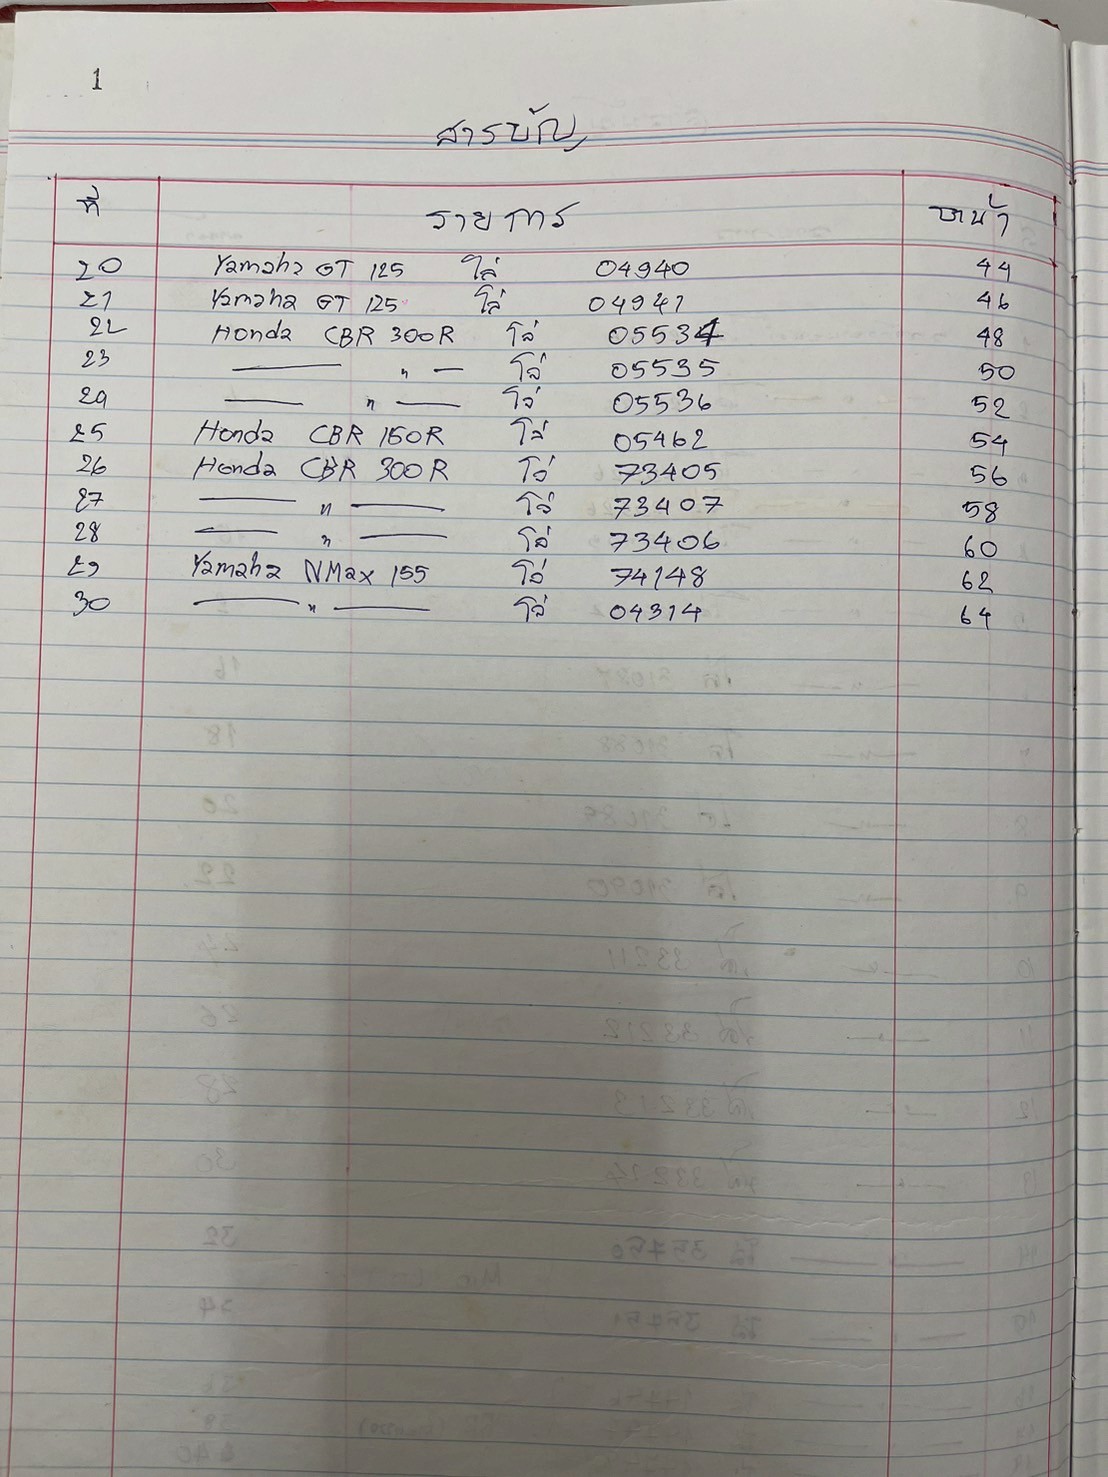 1
สารบัญ
ที่ รายการ หน้า
20 Yamaha GT 125 โล่ 04940 44
21 Yamaha GT 125 โล่ 04941 46
22 Honda CBR 300R โล่ 05534 48
23 — " — โล่ 05535 50
24 — " — โล่ 05536 52
25 Honda CBR 150R โล่ 05462 54
26 Honda CBR 300R โล่ 73405 56
27 — " — โล่ 73407 58
28 — " — โล่ 73406 60
29 Yamaha NMax 155 โล่ 74148 62
30 — " — โล่ 04314 64